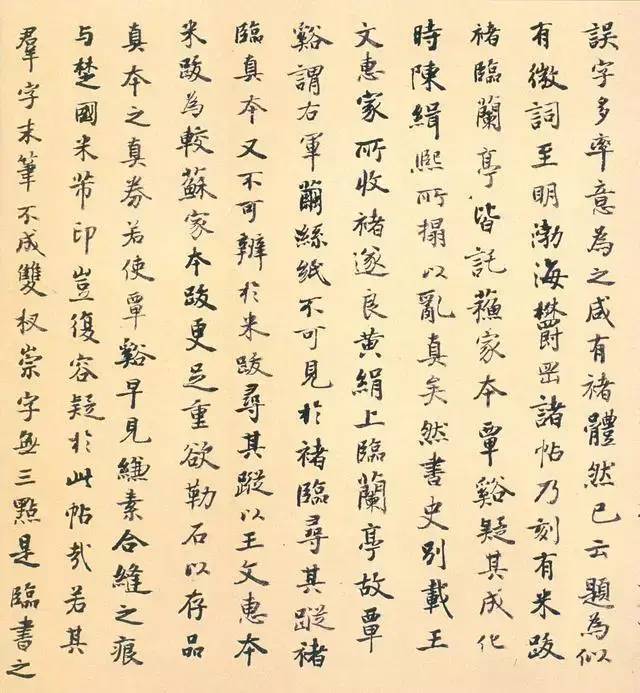 誤字多率意為之咸有褚體然已云題為似
有微詞至明渤海欝岡諸帖乃刻有米跋
褚臨蘭亭皆託蘓家本覃谿疑其成化
時陳緝熙所搨以亂真矣然書史別載王
文惠家所收褚遂良黄絹上臨蘭亭故覃
谿謂右軍繭絲紙不可見於褚臨尋其蹤褚
臨真本又不可辨於米跋尋其蹤以王文惠本
米跋為較蘇家本跋更足重欲勒石以存品
真本之真券若使覃谿早見縑素合縫之痕
与楚國米芾印豈復容疑於此帖哉若其
羣字末筆不成雙杈崇字無三點是臨書之